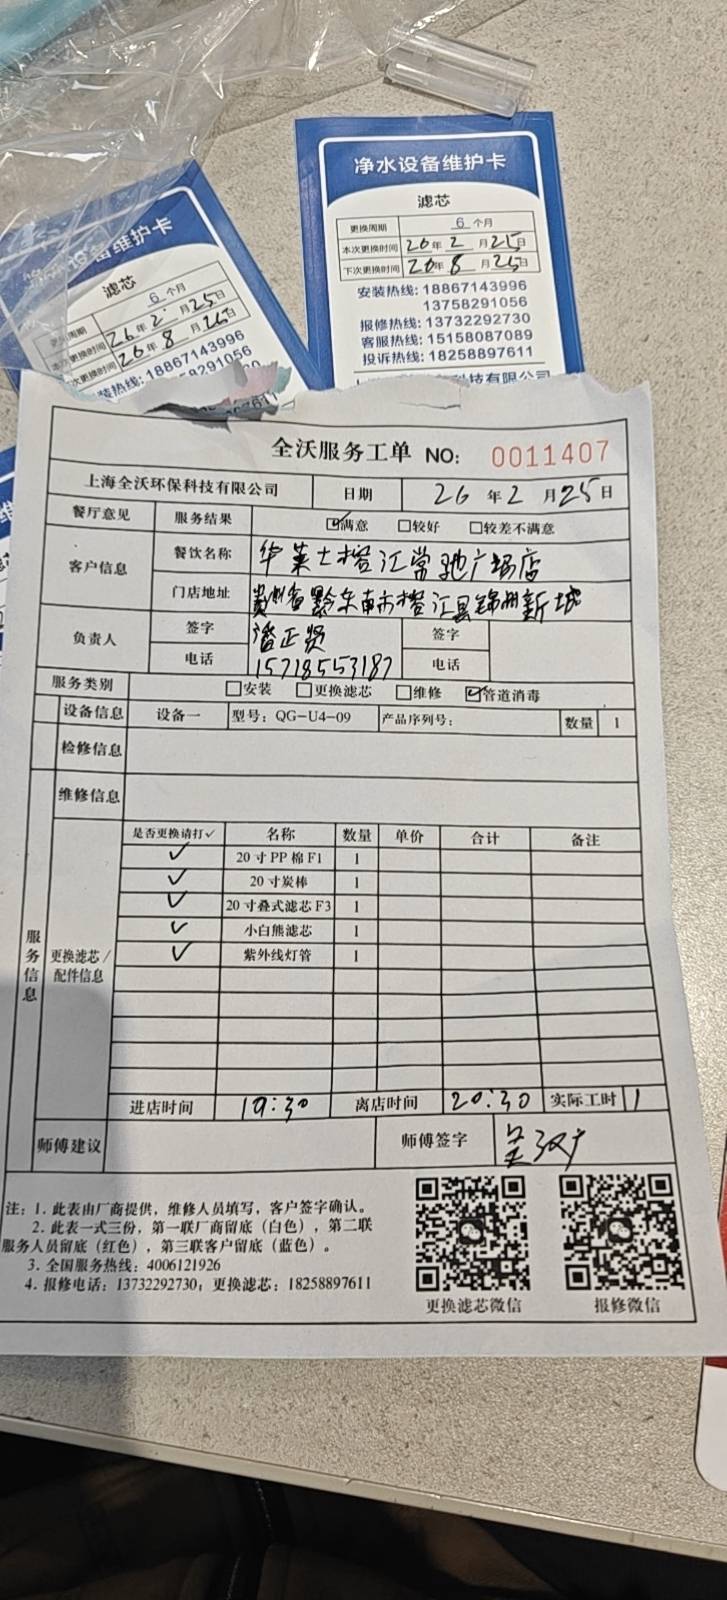 净水设备维护卡
滤芯
更换周期 6 个月
本次更换时间 26年2月25日
下次更换时间 26年8月25日
安装热线: 18867143996
13758291056
报修热线: 13732292730
客服热线: 15158087089
投诉热线: 18258897611
水设备维护卡
滤芯
周期 6 个月
本次更换时间 26年2月25日
次更换时间 26年8月25日
装热线: 18867143996
58291056
全沃服务工单 NO: 0011407
上海全沃环保科技有限公司 日期 26 年 2 月 25 日
餐厅意见 服务结果 ☑满意 □较好 □较差不满意
客户信息 餐饮名称 华莱士榕江常驰广场店
门店地址 贵州省黔东南市榕江县锦州新城
负责人 签字 潘正贤 签字
电话 15718553187 电话
服务类别 □安装 □更换滤芯 □维修 ☑管道消毒
设备信息 设备一 型号: QG-U4-09 产品序列号: 数量 1
检修信息
维修信息
服务信息
更换滤芯/配件信息
是否更换请打✓ 名称 数量 单价 合计 备注
✓ 20寸PP棉F1 1
✓ 20寸炭棒 1
✓ 20寸叠式滤芯F3 1
✓ 小白熊滤芯 1
✓ 紫外线灯管 1
进店时间 19:30 离店时间 20:30 实际工时 1
师傅建议 师傅签字
注: 1. 此表由厂商提供，维修人员填写，客户签字确认。
2. 此表一式三份，第一联厂商留底（白色），第二联
服务人员留底（红色），第三联客户留底（蓝色）。
3. 全国服务热线: 4006121926
4. 报修电话: 13732292730; 更换滤芯: 18258897611
更换滤芯微信 报修微信